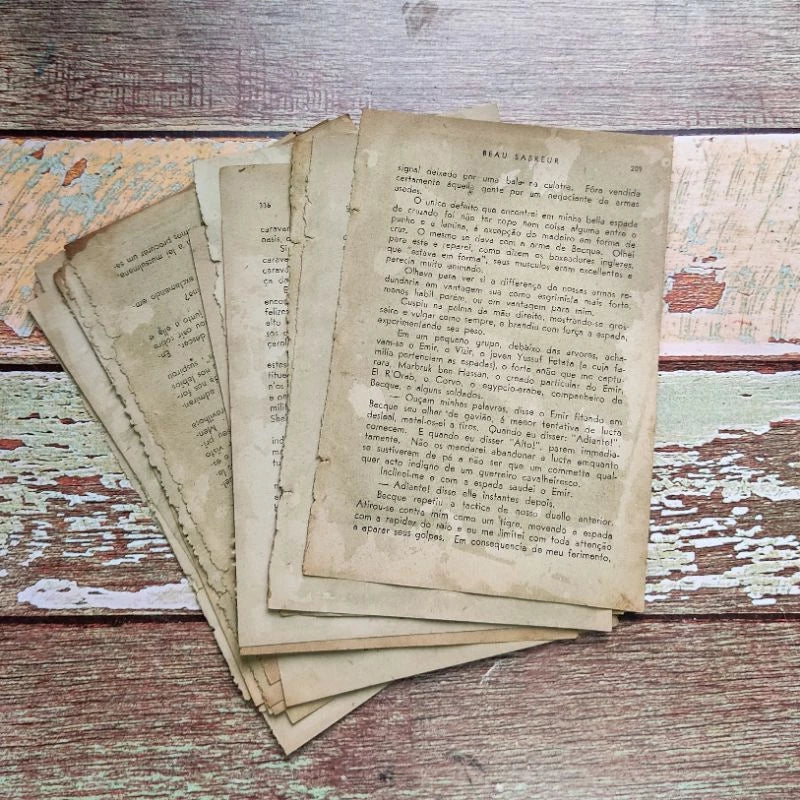 BEAU SABREUR 209
signal deixado por uma bala na culatra. Fôra vendida
certamente áquela gente por um negociante de armas
usadas.
O unico defeito que encontrei em minha bella espada
de cruzado foi não ter copo nem coisa alguma entre o
punho e a lamina, á excepção do madeiro em forma de
cruz. O mesmo se dava com a arma de Becque. Olhei
para este e reparei, como dizem os boxeadores inglezes,
que "estava em forma", seus musculos eram excellentes e
parecia muito animado.
Olhava para ver si a differença de nossas armas re-
dundaria em vantagem sua como esgrimista mais forte,
menos habil porém, ou em vantagem para mim.
Cuspiu na palma da mão direita, mostrando-se gros-
seiro e vulgar como sempre, e brandiu com força a espada,
experimentando seu peso.
Em um pequeno grupo, debaixo das arvores, acha-
vam-se o Emir, o Vizir, o joven Yussuf Fetata (a cuja fa-
milia pertenciam as espadas), o forte anão que me captu-
rara, Marbruk ben Hassan, o creado particular do Emir,
El R'Orab, o Corvo, o egypcio-arabe, companheiro de
Becque, e alguns soldados.
— Ouçam minhas palavras, disse o Emir fitando em
Becque seu olhar de gavião, á menor tentativa de lucta
desleal, matal-os-ei a tiros. Quando eu disser: "Adiante!"
comecem. E quando eu disser "Alto!", parem immedia-
tamente. Não os mandarei abandonar a lucta emquanto
se sustiverem de pé a não ser que um commetta qual-
quer acto indigno de um guerreiro cavalheiresco.
Inclinei-me e com a espada saudei o Emir.
— Adiante! disse elle instantes depois.
Becque repetiu a tactica de nosso duello anterior.
Atirou-se contra mim como um tigre, movendo a espada
com a rapidez do raio e eu me limitei com toda attenção
a aparar seus golpes. Em consequencia de meu ferimento,
116
carava
oasis, o
carava
carav
ça d
E
encos
felize
tas
coroll
estes
tituer
n'os
e on
milit
She
ind
a lei musulmana,
exclamando em
junto a elle e
dancar. En
"suspirou